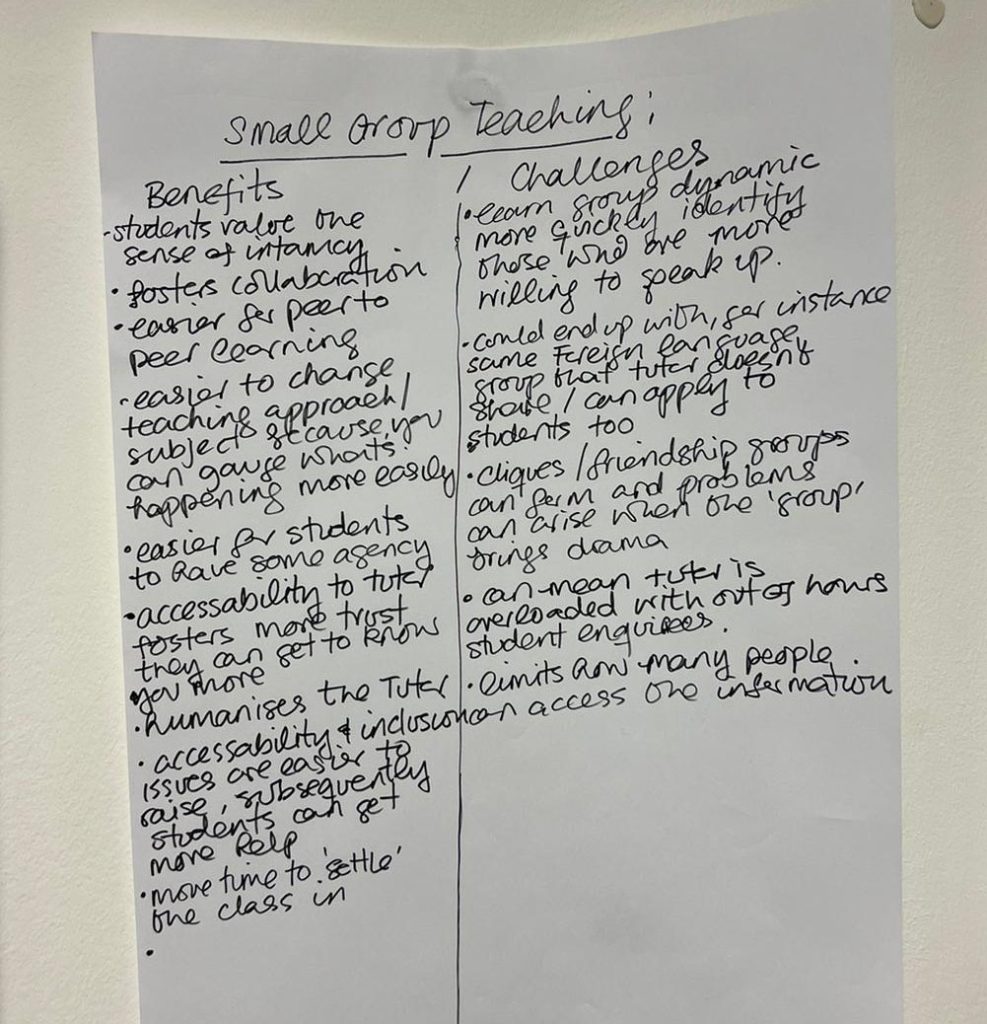 Small Group Teaching:
Benefits
- students value the
sense of intamcy.
• fosters collaboration
• easier for peer to
peer learning
• easier to change
teaching approach/
subject because you
can gauge whats
happening more easily
• easier for students
to have some agency
• accessability to tutor
fosters more trust
they can get to know
you more
• humanises the Tutor
• accessability & inclusion
issues are easier to
raise, subsequently
students can get
more help
• more time to 'settle'
the class in
•
/ Challenges
• learn group dynamic
more quickly identify
those who are more
willing to speak up.
• could end up with, for instance
same foreign language
group that tutor doesn't
share / can apply to
students too
• cliques / friendship groups
can form and problems
can arise when the 'group'
brings drama
• can mean tutor is
overloaded with out of hours
student enquirees.
• limits how many people.
can access the information